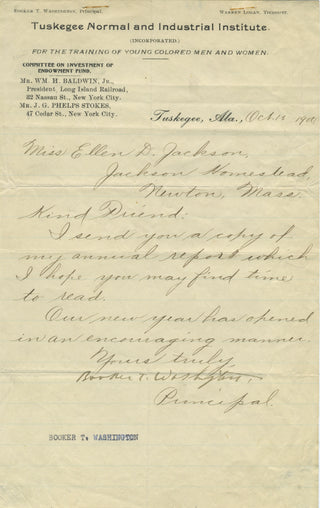 BOOKER T. WASHINGTON, Principal. WARREN LOGAN, Treasurer.
Tuskegee Normal and Industrial Institute.
(INCORPORATED.)
FOR THE TRAINING OF YOUNG COLORED MEN AND WOMEN.
COMMITTEE ON INVESTMENT OF
ENDOWMENT FUND.
MR. WM. H. BALDWIN, JR.,
President, Long Island Railroad,
32 Nassau St., New York City.
MR. J. G. PHELPS STOKES,
47 Cedar St., New York City.
Tuskegee, Ala., Oct. 190
Miss Ellen D. Jackson,
Jackson Homestead,
Newton, Mass.
Kind Friend:
I send you a copy of
my annual report which
I hope you may find time
to read.
Our new year has opened
in an encouraging manner.
Yours truly
Booker T. Washington,
Principal.
BOOKER T. WASHINGTON